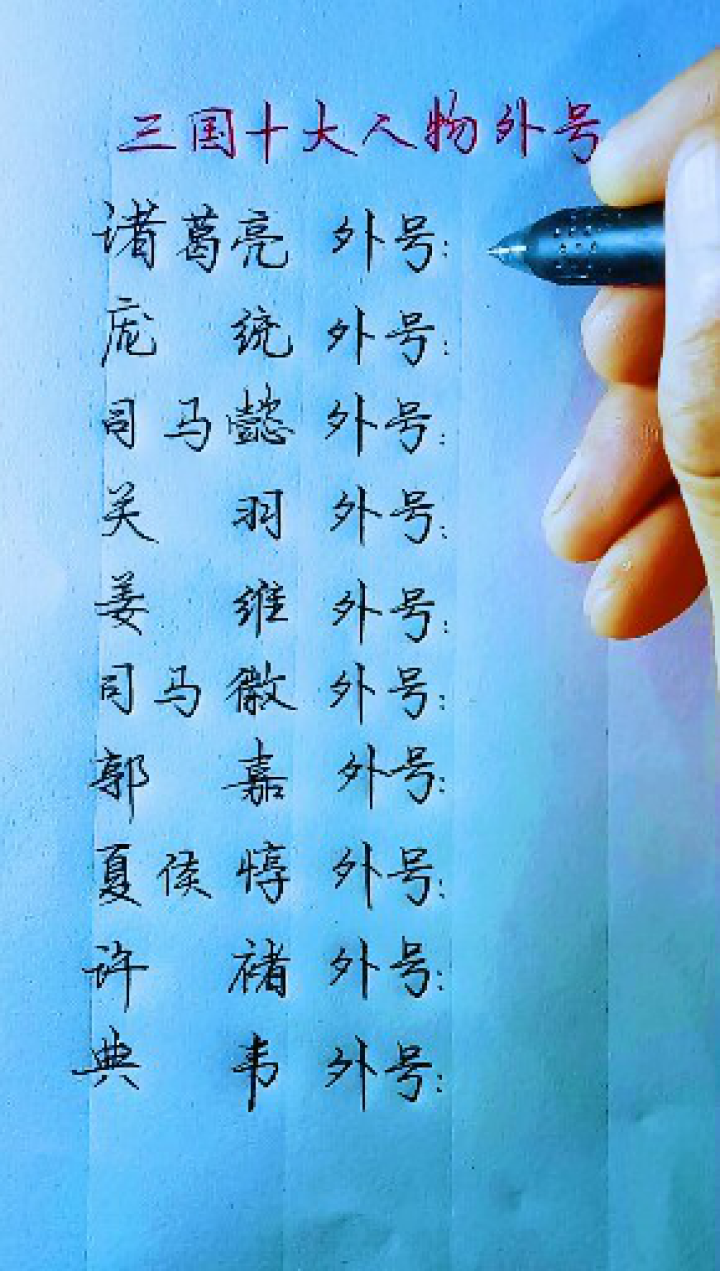 三国十大人物外号
诸葛亮 外号:
庞 统 外号:
司马懿 外号:
关 羽 外号:
姜 维 外号:
司马徽 外号:
郭 嘉 外号:
夏侯惇 外号:
许 褚 外号:
典 韦 外号: